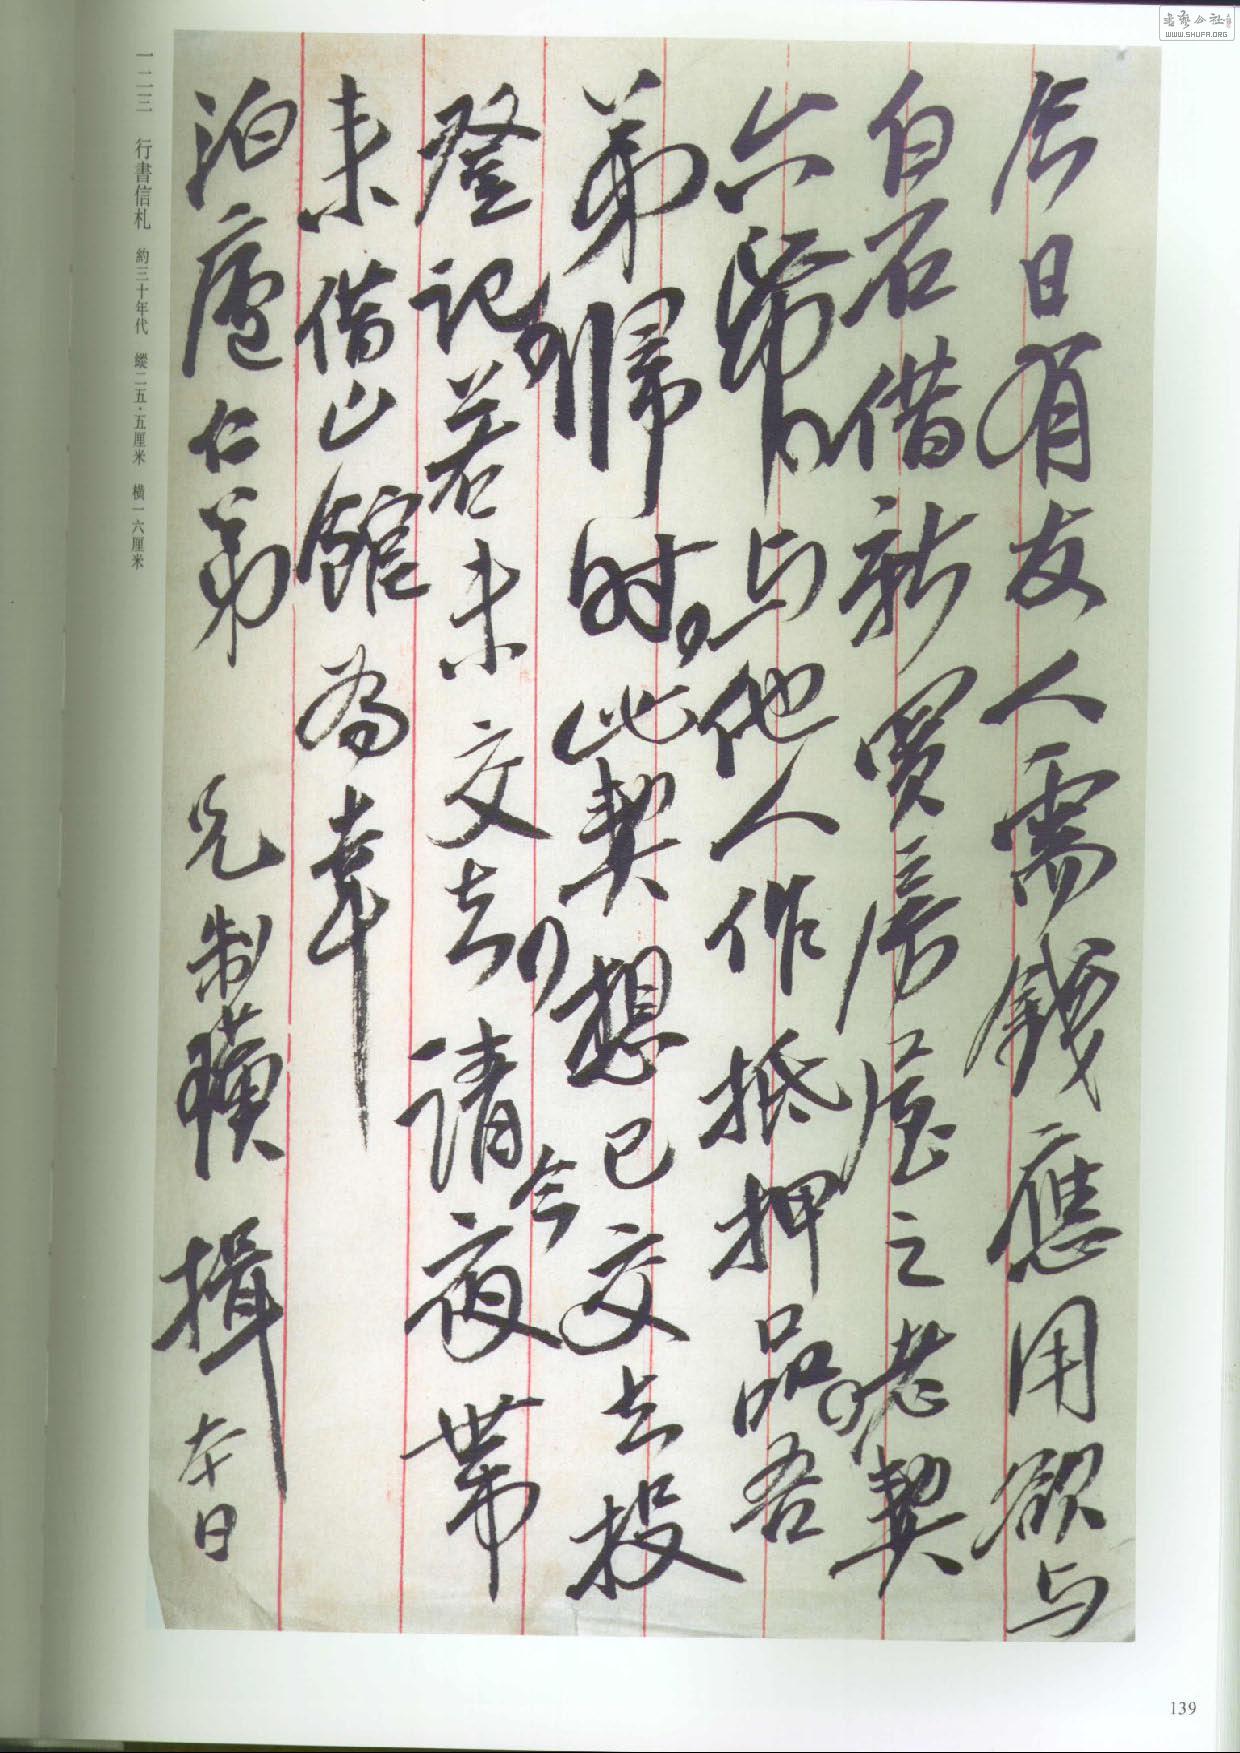 居日有友人需錢應用欲与
白石借新買房屋之老契
六帋与他人作抵押品吾
弟歸时此契想已交去投
登記若未交去請今夜帶
来借山館為幸
泊廬仁弟 兄制璜揖 本日
一二三 行書信札 約三十年代 縱二五·五厘米 橫一六厘米
139
书艺公社
WWW.SHUFA.ORG